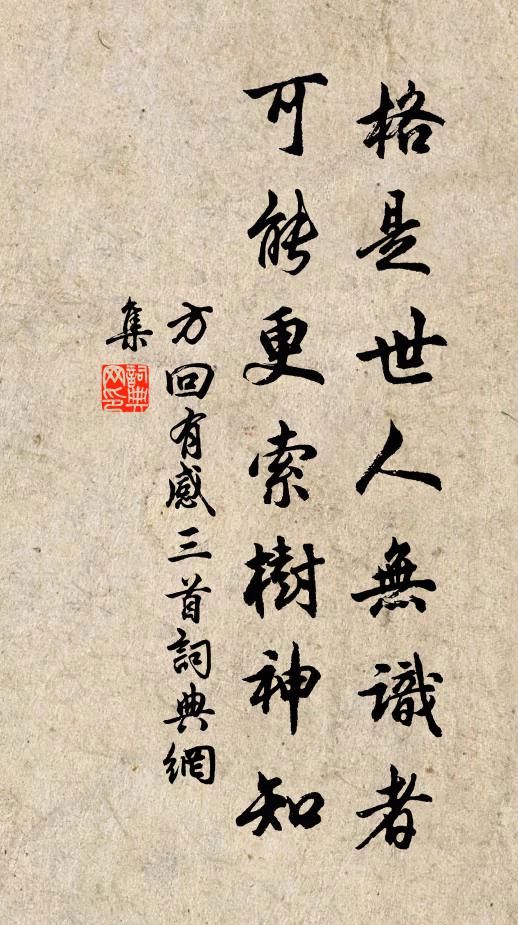 格是世人無識者
可能更索樹神知
方回有感三首詞典網
集
詞典
网印